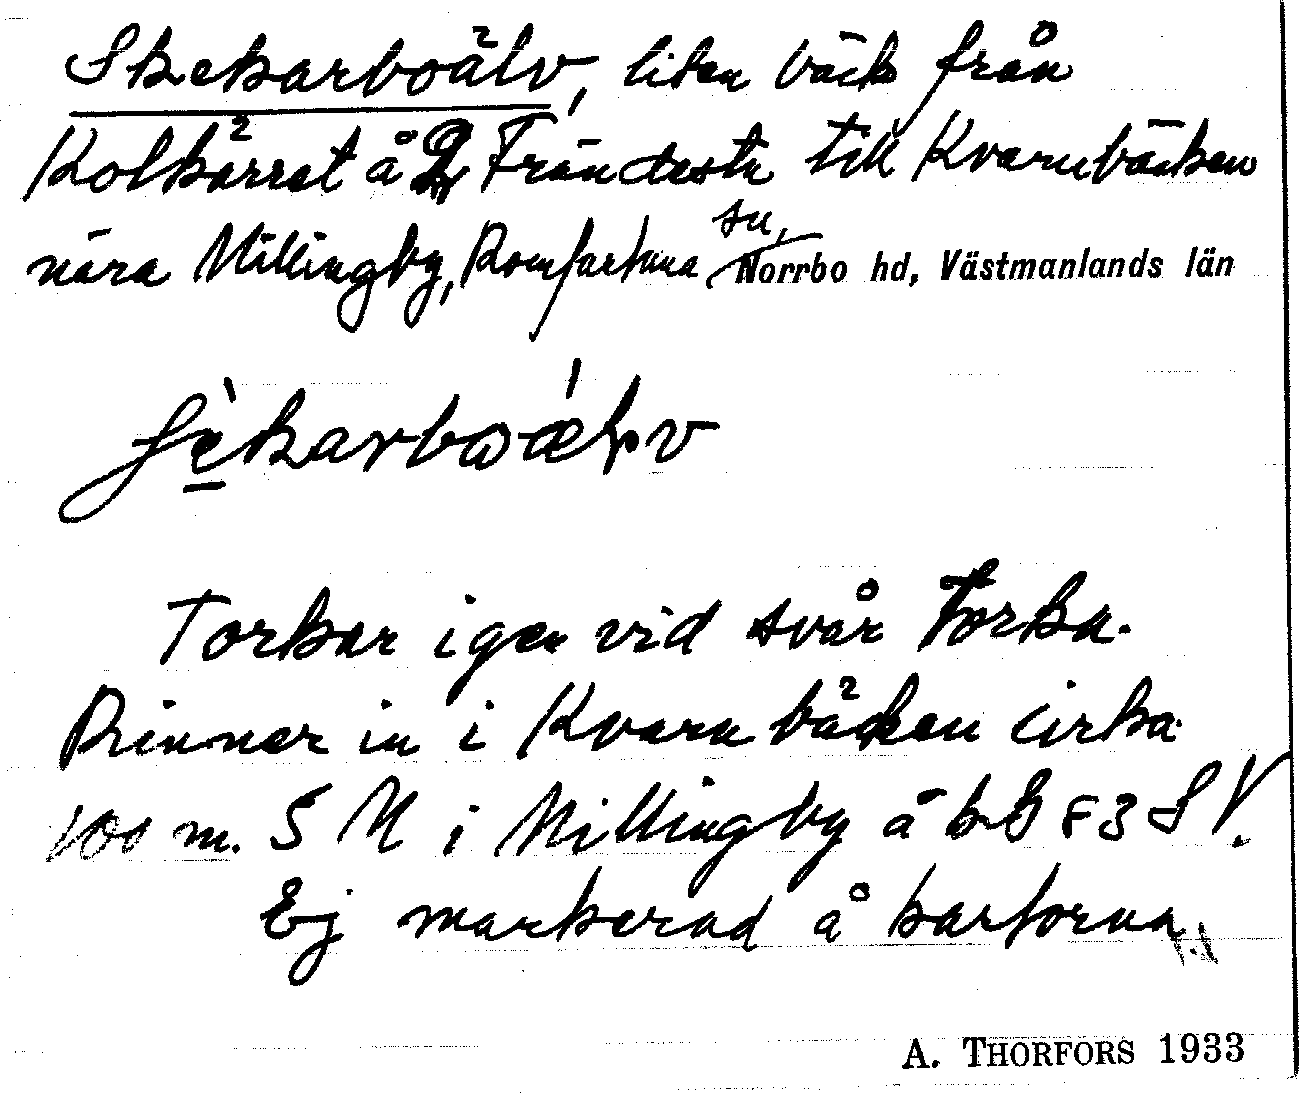 Skekarboälv, liten bäck från
Kolkärret å Frändesta till Kvarnbäcken
nära Nillingby, Romfartuna sn, Norrbo hd, Västmanlands län
Torkar igen vid svår Torka.
Rinner in i Kvarnbäcken cirka
100 m. S N i Nillingby å bB 83 SV.
Ej markerad å kartorna
A. THORFORS 1933